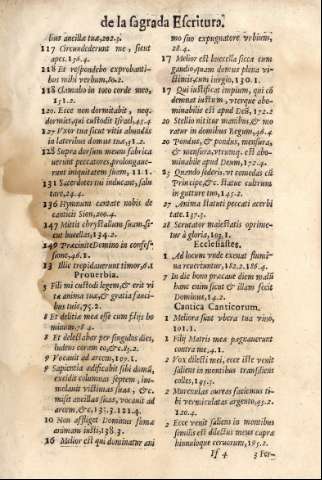 de la sagrada Escritura.
lius ancillæ tuæ, 202.3.
117 Circundederunt me, sicut
apes. 136.4.
118 Et respondebo exprobanti-
bus mihi verbum, 80.2.
118 Clamabo in toto corde meo,
151.2.
120 Ecce non dormitabit, neq;
dormiet, qui custodit Israel, 45.4
127 Vxor tua sicut vitis abundãs
in lateribus domus tuæ, 31.2.
128 Supra dorsum meum fabrica
uerunt peccatores, prolongaue-
runt iniquitatem suam, 11.1.
131 Sacerdotes induant, salu
tare, 24.4.
136 Hymnum cantate nobis de
canticis Sion, 200.4.
147 Mittit chrystallum suam, si-
cut buccellas, 134.2.
149 Præcinite Domino in confes-
sione, 46.1.
13 Illic trepidauerunt timore, 6.1
Prouerbia.
3 Fili mi custodi legem, & erit vi
ta animæ tuæ, & gratia fauci-
bus tuis, 75.2.
8 Et delitiæ meæ esse cum filijs ho
minum, 78.4.
8 Et delectabar per singulos dies,
ludens coram eo, & c. 85.2.
9 Vocauit ad arcem, 107.1.
9 Sapientia ædificabit sibi domũ,
excidit columnas septem, im-
molauit victimas suas, & c.
misit ancillas suas, vocauit ad
arcem, & c, 133.3. 121.4.
10 Non affliget Dominus fama
animam iusti, 138.3.
16 Melior est qui dominatur ani
mo suo expugnatore vrbium,
28.4.
17 Melior est buccella sicca cum
gaudio, quam domus plena vi-
ctimis, cum iurgio, 130.1.
17 Qui iustificat impium, qui cõ
demnat iustum, vterque abo-
minabilis est apud Deũ, 172.2
20 Stellio nititur manibus, & mo
ratur in domibus Regum, 46.4.
20 Pondus, & pondus, mensura,
& mensura, vtrumq; est abo-
minabile apud Deum, 172.4.
23 Quando sederis vt comedas cũ
Principe, & c. statue cultrum
in gutture tuo, 145.2.
27 Anima saturati peccati acerbi
tate. 137.3.
28 Scrutator maiestatis oprime-
tur à gloria, 103.1.
Ecclesiastes.
1 Ad locum vnde exeunt flumi-
na reuertuntur, 182.2. 186.4.
7 In die bona præcaue diem malũ
hanc enim sicut & illam fecit
Dominus, 14.2.
Cantica Canticorum.
1 Meliora sunt vbera tua vino,
101.1.
1 Filij Matris meæ pugnauerunt
contra me, 41.1.
2 Vox dilecti mei, ecce iste venit
saliens in montibus transiliens
colles, 195.3.
2 Murenulas aureas faciemus ti-
bi vermiculatas argento, 45.2.
120.4.
2 Ecce venit saliens in montibus
similis est dilectus meus capræ
hinnuloque ceruorum, 195.2.
If 4
3 Fer-